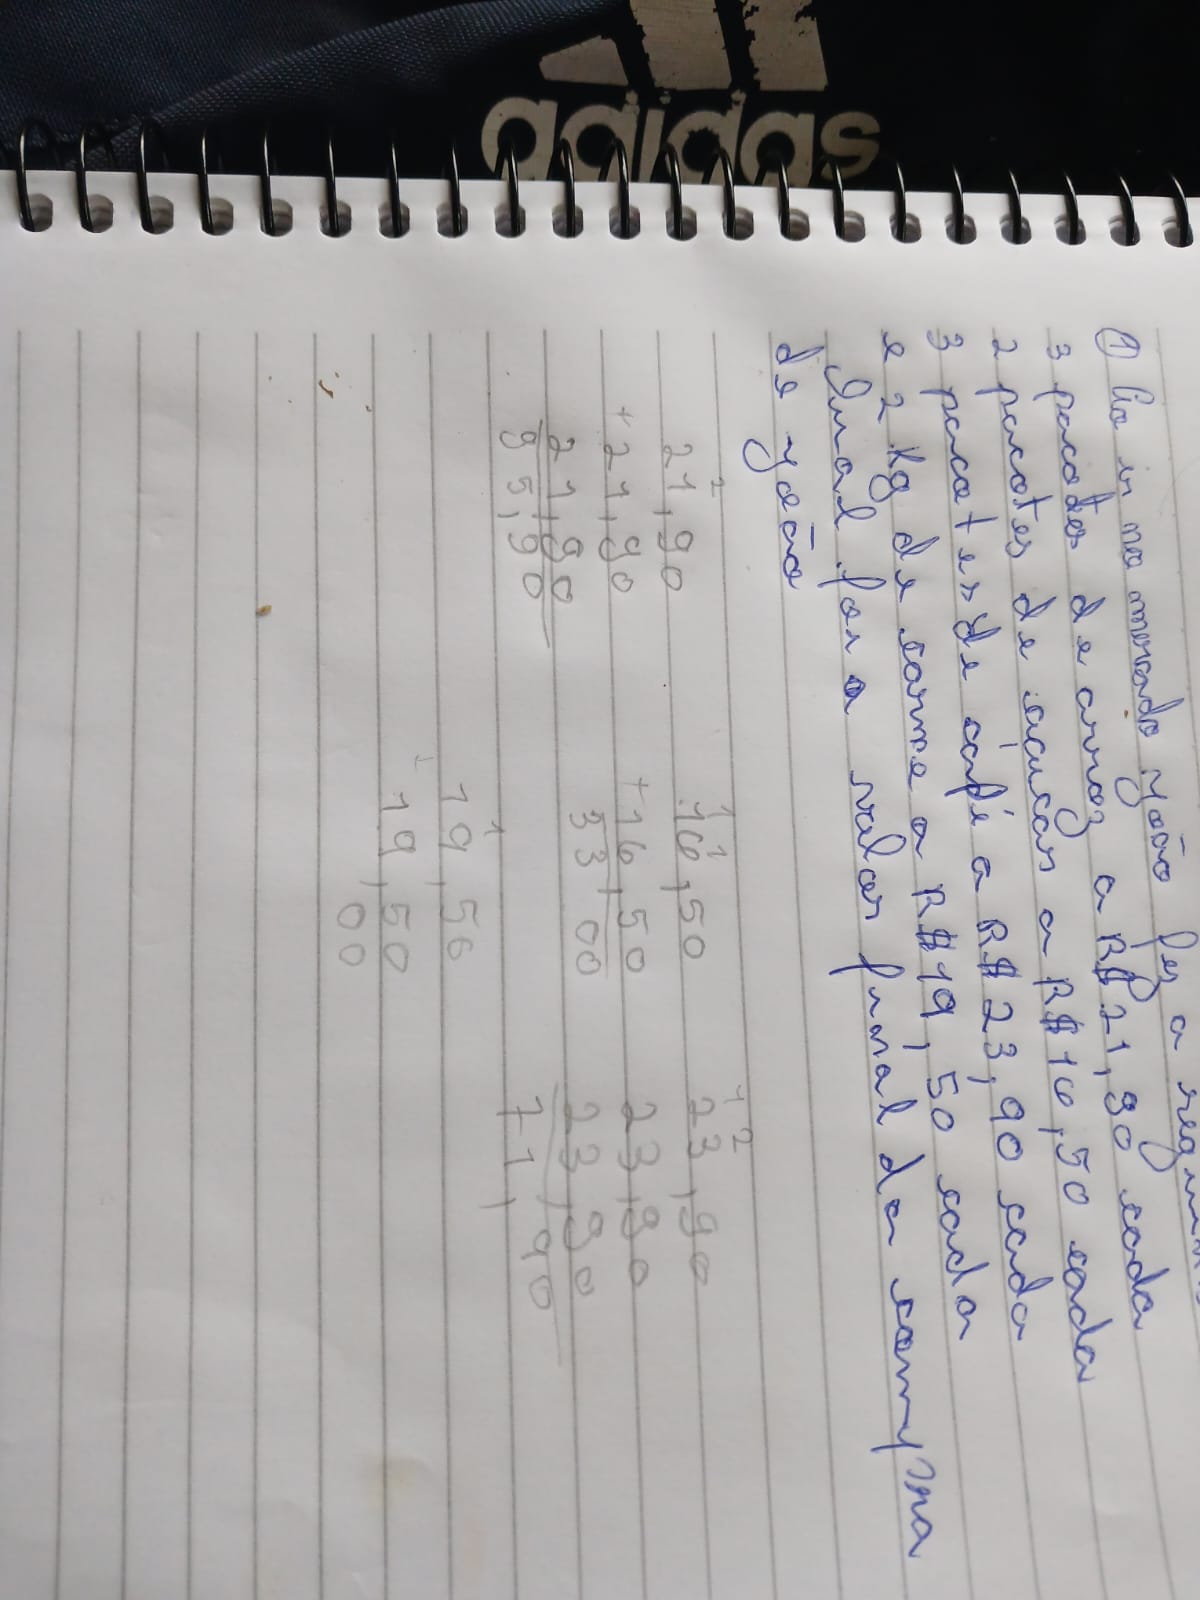 adidas
① Ao ir no mercado João fez a
3 pacotes de arroz a R$ 21,90 cada
2 pacotes de açucar a R$ 16,50 cada
3 pacotes de café a R$ 23,90 cada
e 2 kg de carne a R$ 19,50 cada
Qual foi o valor final da compra
de João
2 1 1 1 2
21,90 16,50 23,90
+ 21,90 + 16,50 23,90
21,90 33,00 23,90
95,90 71,90
1
19,50
+ 19,50
00